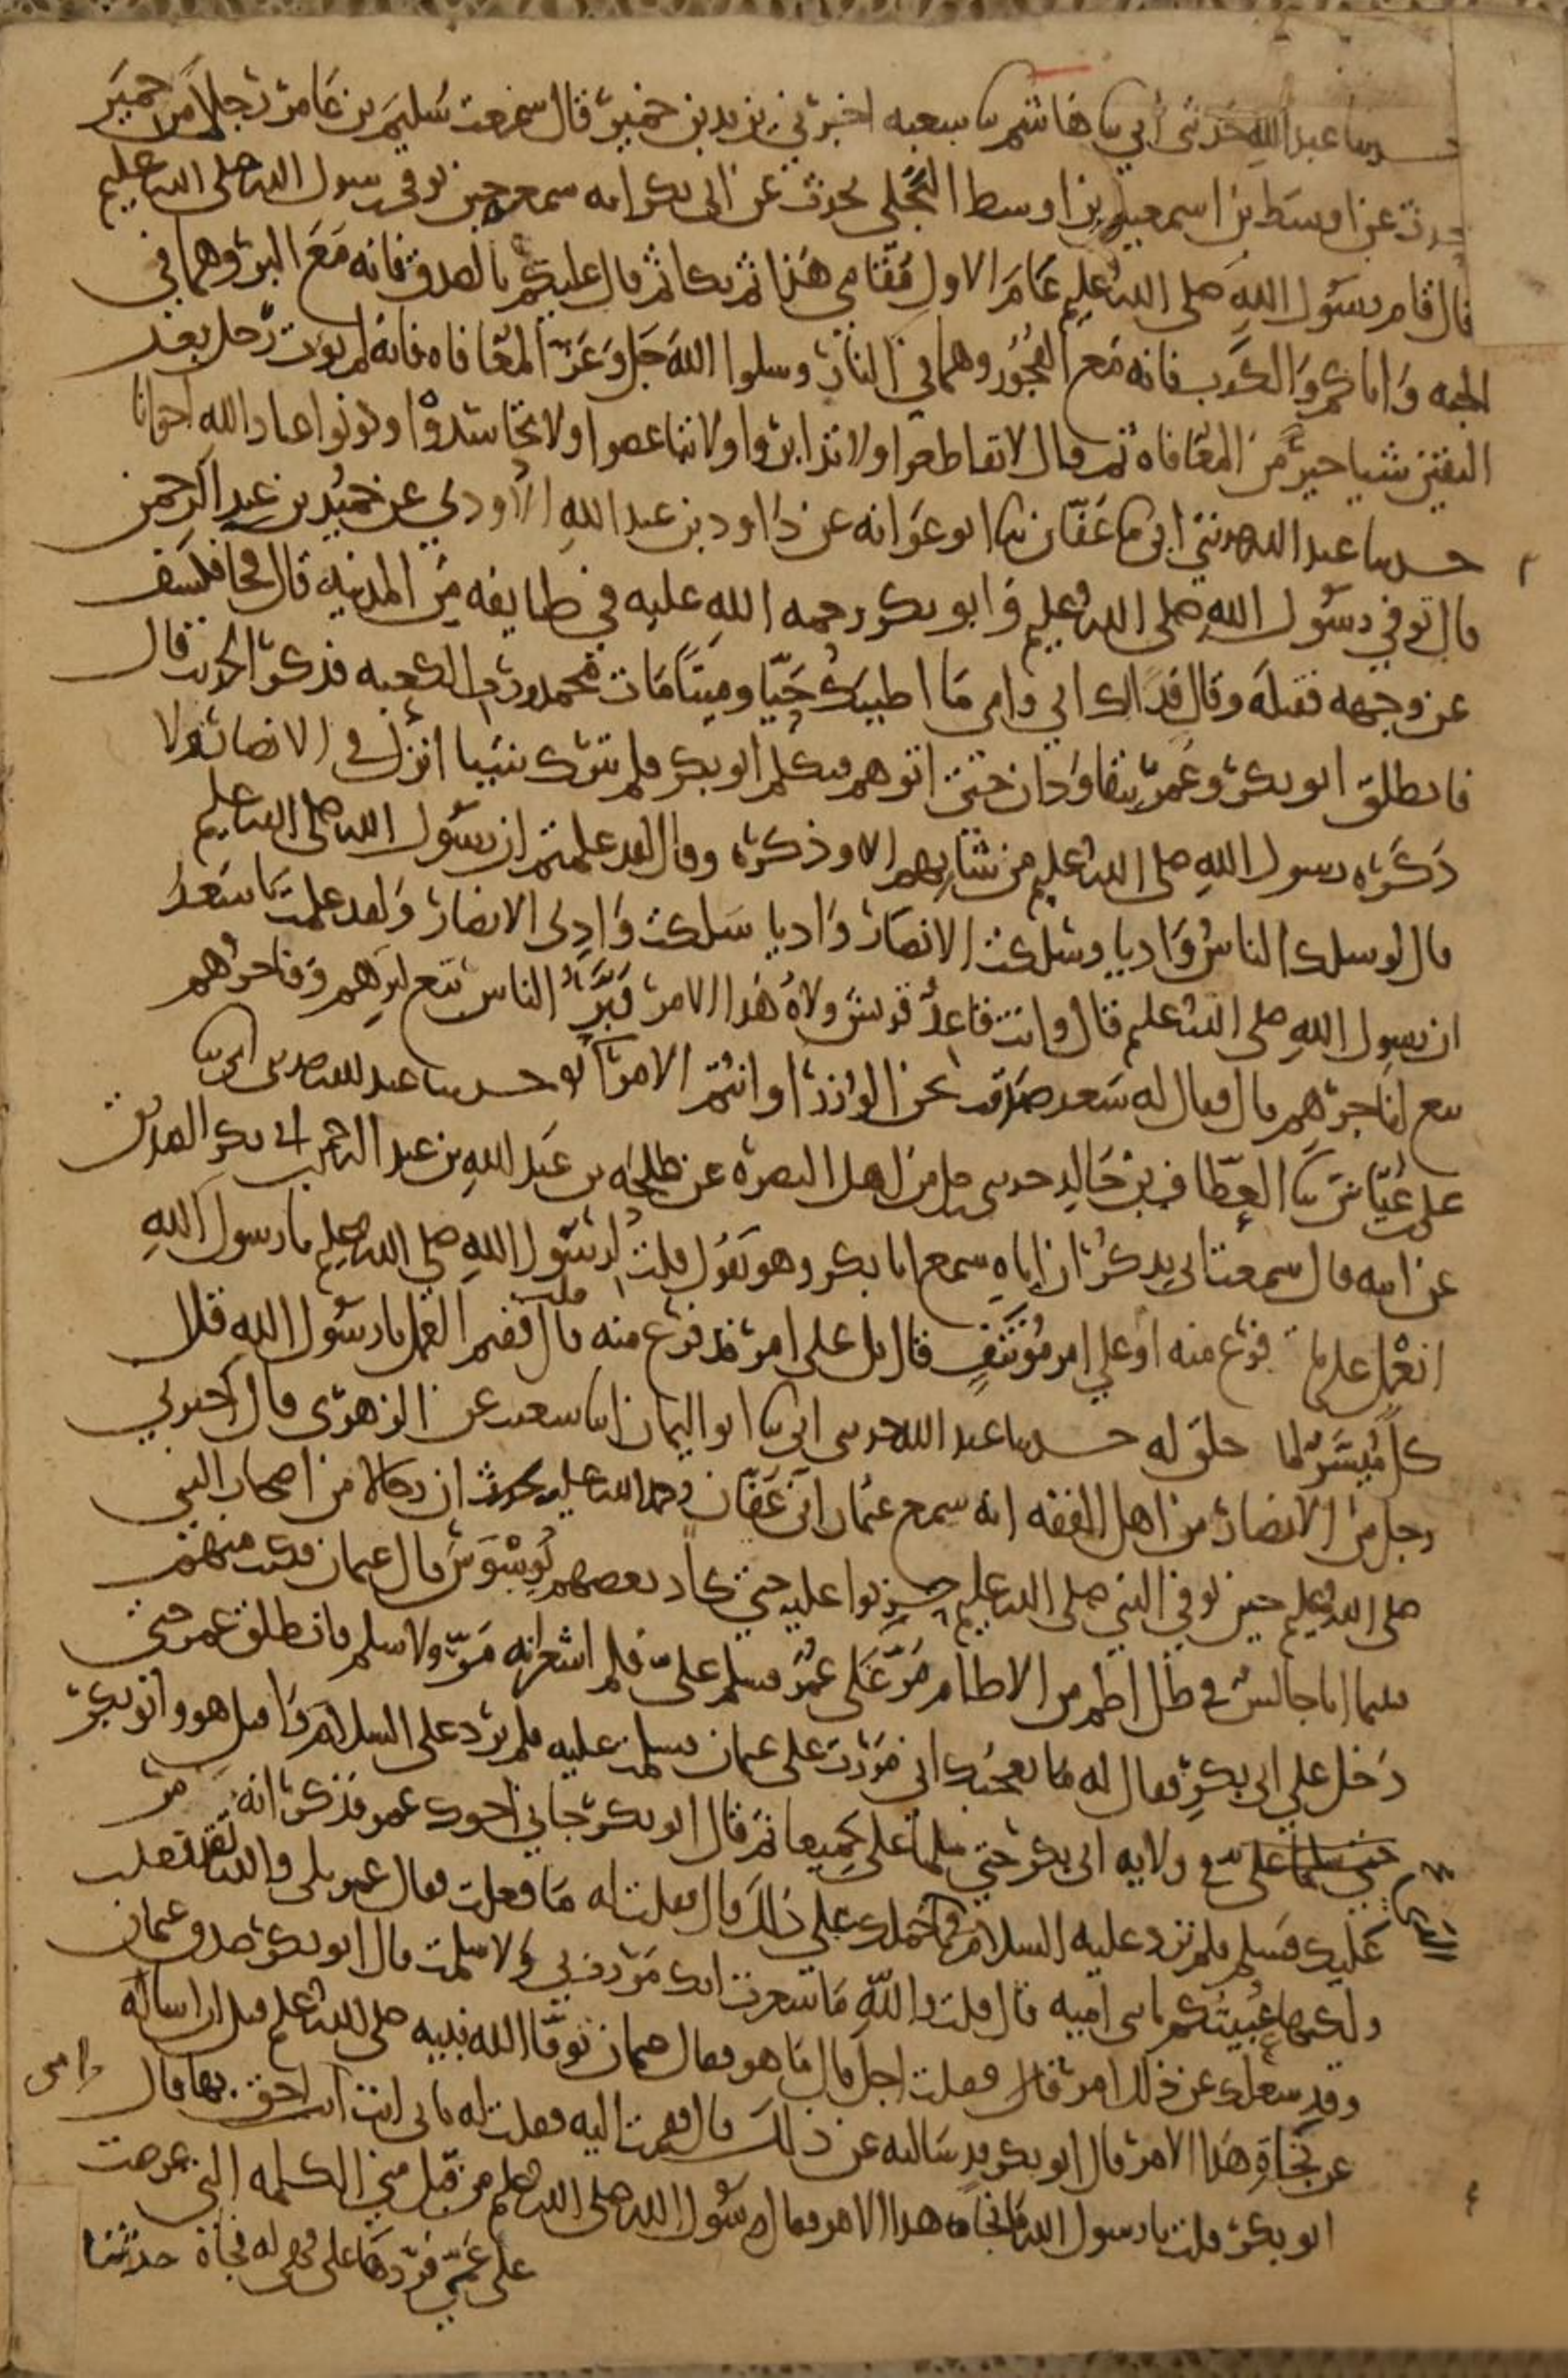 حدثنا عبد الله حدثني أبي ثنا هاشم ثنا شعبه اخبرني يزيد بن خمير قال سمعت سليم بن عامر رجلا من حمير
يحدث عن اوسط بن اسمعيل بن اوسط البجلي يحدث عن ابي بكر انه سمعه حين توفي رسول الله صلى الله عليم
قال قام رسول الله صلى الله عليم عام الاول مقامي هذا ثم بكا ثم قال عليكم بالصدق فانه مع البر وهما في
الجنه واياكم والكذب فانه مع الفجور وهما في النار وسلوا الله جل وعز المعافاه فانه لم يوت رجل بعد
اليقين شيا خير من المعافاه ثم قال لا تقاطعوا ولا تدابروا ولا تباغضوا ولا تحاسدوا وكونوا عباد الله اخوانا
حدثنا عبد الله حدثني ابي ثنا عفان ثنا ابو عوانه عن داود بن عبد الله الاودي عن حميد بن عبد الرحمن
قال توفي رسول الله صلى الله عليم وابو بكر رحمه الله عليه في طايفه من المدينه قال فجا فكشف
عن وجهه فقبله وقال فداك ابي وامي ما اطيبك حيا وميتا مات محمد ورب الكعبه فذكر الحديث قال
فانطلق ابو بكر وعمر يتقاودان حتى اتوهم فتكلم ابو بكر فلم يترك شيا انزل في الانصار ولا
ذكره رسول الله صلى الله عليم من شانهم الا وذكره وقال لقد علمتم ان رسول الله صلى الله عليم
قال لو سلك الناس واديا وسلكت الانصار واديا سلكت وادي الانصار ولقد علمت يا سعد
ان رسول الله صلى الله عليم قال وانت قاعد قريش ولاه هذا الامر فبر الناس تبع لبرهم وفاجرهم
تبع لفاجرهم قال فقال له سعد صدقت نحن الوزرا وانتم الامرا حدثنا عبد الله حدثني ابي ثنا
علي بن عياش ثنا العطاف بن خالد حدثني رجل من اهل البصره عن طلحه بن عبد الله بن عبد الرحمن بن ابي بكر الصديق
عن ابيه قال سمعت ابي يذكر ان اباه سمع ابا بكر وهو يقول قلت لرسول الله صلى الله عليم يا رسول الله
انعمل على ما فرغ منه او على امر موتنف قال بل على امر قد فرغ منه قال قلت ففيم العمل يا رسول الله قال
كل ميسر لما خلق له حدثنا عبد الله حدثني ابي ثنا ابو اليمان انا شعيب عن الزهري قال اخبرني
رجل من الانصار من اهل الفقه انه سمع عثمان بن عفان رحمه الله عليه يحدث ان رجالا من اصحاب النبي
صلى الله عليم حين توفي النبي صلى الله عليم حزنوا عليه حتى كاد بعضهم يوسوس قال عثمان فكنت منهم
فبينا انا جالس في ظل اطم من الاطام مر علي عمر فسلم علي فلم اشعر انه مر ولا سلم فانطلق عمر حتى
دخل على ابي بكر فقال له ما يعجبك اني مررت على عثمان فسلمت عليه فلم يرد علي السلام واقبل هو وابو بكر
حتى سلما علي في ولايه ابي بكر حتى سلما علي جميعا ثم قال ابو بكر جاني اخوك عمر فذكر انه مر
عليك فسلم فلم ترد عليه السلام فما حملك على ذلك قال فقلت له ما فعلت فقال عمر بلى والله لقد فعلت
ولكنها عبيتكم يا بني اميه قال قلت والله ما شعرت انك مررت بي ولا سلمت قال ابو بكر صدق عثمان
وقد شغلك عن ذلك امر قال فقلت اجل قال ما هو فقال عثمان توفا الله نبيه صلى الله عليم قبل ان اساله
عن نجاة هذا الامر قال ابو بكر قد سالته عن ذلك قال فقمت اليه فقلت له بابي انت وامي انت احق بها قال
ابو بكر قلت يا رسول الله ما نجاة هذا الامر فقال رسول الله صلى الله عليم من قبل مني الكلمه التي عرضت
على عمي فردها علي فهي له نجاة حدثنا